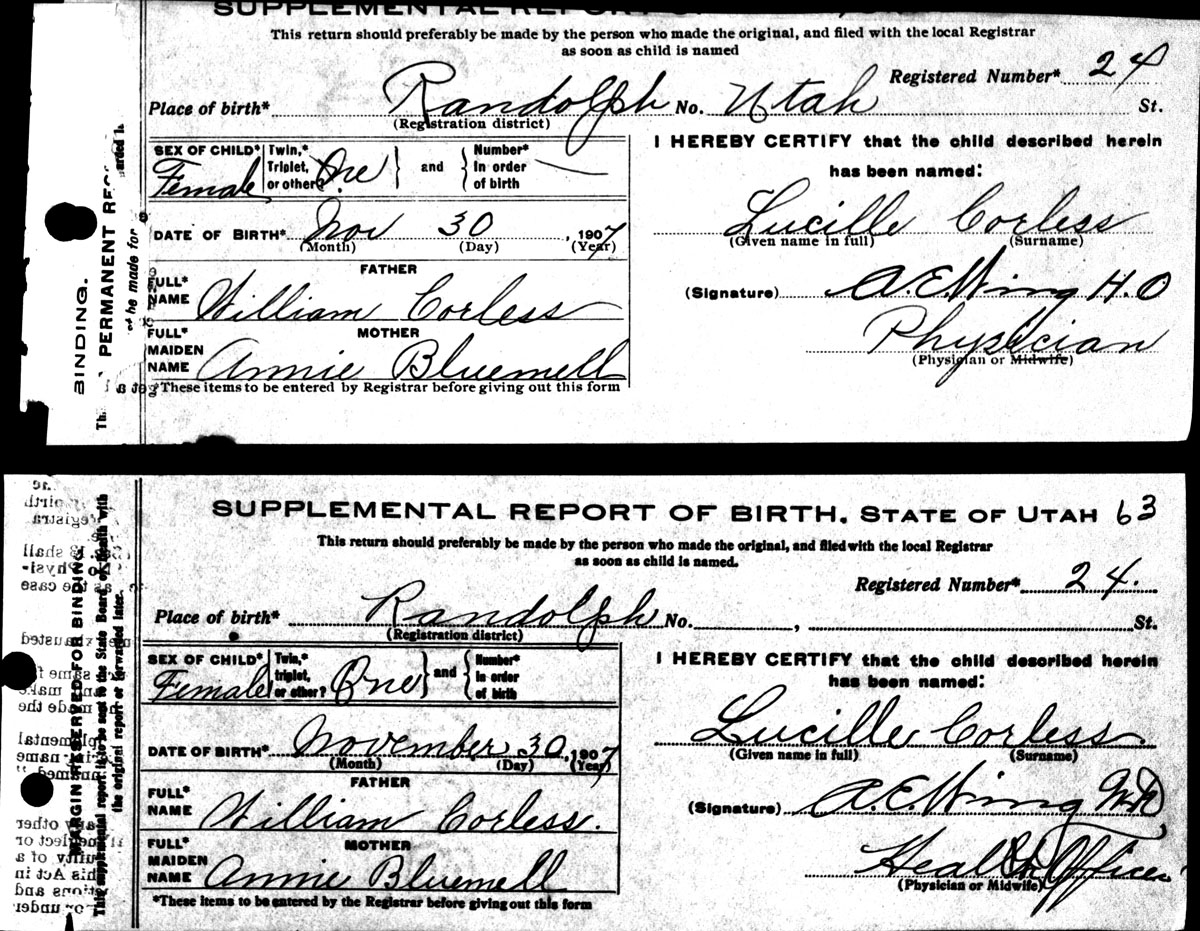 SUPPLEMENTAL REPORT OF
This return should preferably be made by the person who made the original, and filed with the local Registrar
as soon as child is named
Registered Number* 24
Place of birth* Randolph No. Utah St.
(Registration district)
SEX OF CHILD* Female
Twin,* Triplet, or other? One
and
Number* In order of birth
DATE OF BIRTH* Nov 30, 1907
(Month) (Day) (Year)
FATHER
FULL* NAME William Corless
MOTHER
FULL* MAIDEN NAME Annie Bluemell
*These items to be entered by Registrar before giving out this form
I HEREBY CERTIFY that the child described herein
has been named:
Lucille Corless
(Given name in full) (Surname)
(Signature) A. E. Wing H.O
Physician
(Physician or Midwife)
BINDING.
PERMANENT
be made for
SUPPLEMENTAL REPORT OF BIRTH, STATE OF UTAH 63
This return should preferably be made by the person who made the original, and filed with the local Registrar
as soon as child is named.
Registered Number* 24.
Place of birth* Randolph No. , St.
(Registration district)
SEX OF CHILD* Female
Twin,* triplet, or other? One
and
Number* in order of birth
DATE OF BIRTH* November 30, 1907
(Month) (Day) (Year)
FATHER
FULL* NAME William Corless.
MOTHER
FULL* MAIDEN NAME Annie Bluemell
*These items to be entered by the Registrar before giving out this form
I HEREBY CERTIFY that the child described herein
has been named:
Lucille Corless.
(Given name in full) (Surname)
(Signature) A. E. Wing M.D
Health Officer
(Physician or Midwife)
MARGIN RESERVED FOR BINDING.
This supplemental report is to be sent to the State Board of Health with
the original report or forwarded later.